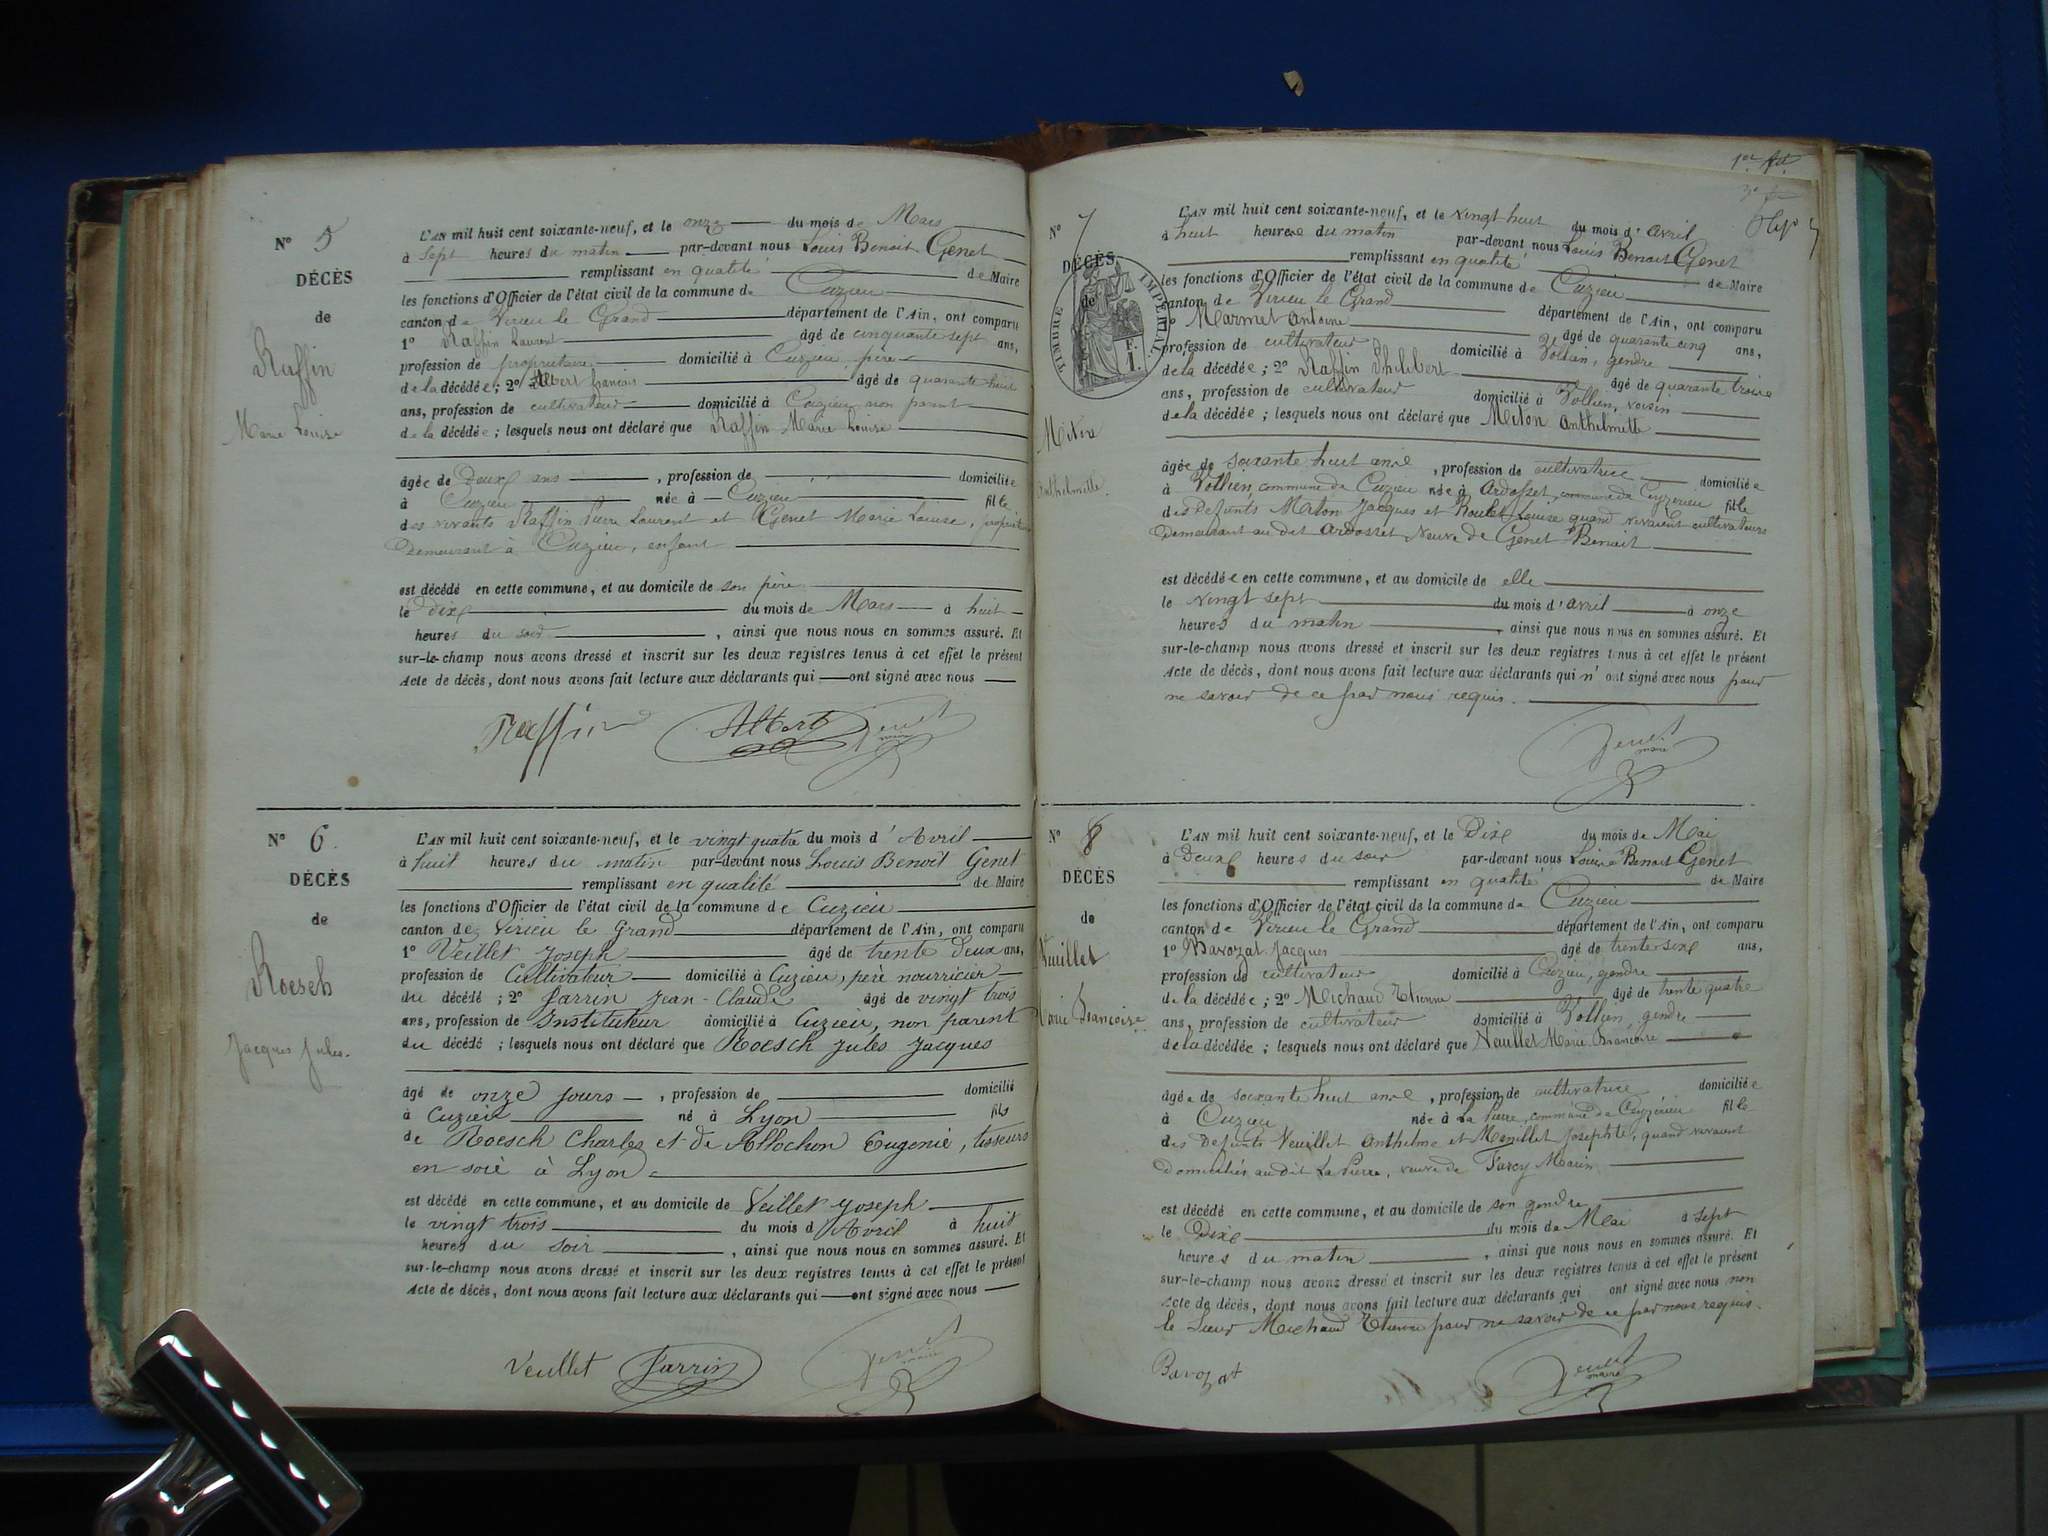 N° 5
DÉCÈS
de
Raffin
Marie Louise
L'AN mil huit cent soixante-neuf, et le onze du mois de Mars
à sept heures du matin par-devant nous Louis Benoit Genet
remplissant en qualité de Maire
les fonctions d'Officier de l'état civil de la commune de Cuzieu
canton de Virieu le Grand département de l'Ain, ont comparu
1° Raffin Laurent âgé de cinquante sept ans,
profession de propriétaire domicilié à Cuzieu, père
de la décédée ; 2° Albert français âgé de quarante huit
ans, profession de cultivateur domicilié à Cuzieu non parent
de la décédée ; lesquels nous ont déclaré que Raffin Marie Louise
âgée de Deux ans , profession de domiciliée
à Cuzieu née à Cuzieu fille
des vivants Raffin Pierre Laurent et Genet Marie Louise,
Demeurant à Cuzieu, enfant
est décédé en cette commune, et au domicile de son père
le Dix du mois de Mars à huit
heures du soir , ainsi que nous nous en sommes assuré. Et
sur-le-champ nous avons dressé et inscrit sur les deux registres tenus à cet effet le présent
Acte de décès, dont nous avons fait lecture aux déclarants qui ont signé avec nous
Raffin Albert Genet
maire
N° 6.
DÉCÈS
de
Roesch
Jacques Jules.
L'AN mil huit cent soixante-neuf, et le vingt quatre du mois d'Avril
à huit heures du matin par-devant nous Louis Benoit Genet
remplissant en qualité de Maire
les fonctions d'Officier de l'état civil de la commune de Cuzieu
canton de Virieu le Grand département de l'Ain, ont comparu
1° Veillet Joseph âgé de trente Deux ans,
profession de Cultivateur domicilié à Cuzieu, père nourricier
du décédé ; 2° Jarrin Jean-Claude âgé de vingt trois
ans, profession de Instituteur domicilié à Cuzieu, non parent
du décédé ; lesquels nous ont déclaré que Roesch Jules Jacques
âgé de onze jours , profession de domicilié
à Cuzieu né à Lyon fils
de Roesch Charles et de Allochon Eugenie, tisseurs
en soie à Lyon
est décédé en cette commune, et au domicile de Veillet Joseph
le vingt trois du mois d'Avril à huit
heures du soir , ainsi que nous nous en sommes assuré. Et
sur-le-champ nous avons dressé et inscrit sur les deux registres tenus à cet effet le présent
Acte de décès, dont nous avons fait lecture aux déclarants qui ont signé avec nous
Veullet Jarrin Genet
maire
1er
N° 7
DÉCÈS
de
TIMBRE IMPÉRIAL
F.
1.
Miton
Anthelmette.
L'AN mil huit cent soixante-neuf, et le vingt huit du mois d'avril
à huit heures du matin par-devant nous Louis Benoit Genet
remplissant en qualité de Maire
les fonctions d'Officier de l'état civil de la commune de Cuzieu
canton de Virieu le Grand département de l'Ain, ont comparu
1° Marmet Antoine âgé de quarante cinq ans,
profession de cultivateur domicilié à Vollien, gendre
de la décédée ; 2° Raffin Philibert âgé de quarante troise
ans, profession de cultivateur domicilié à Vollien, voisin
de la décédée ; lesquels nous ont déclaré que Miton Anthelmette
âgée de soixante huit ans , profession de cultivatrice domiciliée
à Vollien, commune de Cuzieu née à Ardosset, commune de Ceyzerieu fille
des Défunts Miton Jacques et Roulet Louise quand vivaient cultivateurs
Demeurant au dit Ardosset, Veuve de Genet Benoit
est décédée en cette commune, et au domicile de elle
le vingt sept du mois d'avril à onze
heures du matin , ainsi que nous nous en sommes assuré. Et
sur-le-champ nous avons dressé et inscrit sur les deux registres tenus à cet effet le présent
Acte de décès, dont nous avons fait lecture aux déclarants qui n'ont signé avec nous pour
ne savoir de ce par nous requis.
Genet
maire
N° 8
DÉCÈS
de
Veuillet
Marie Francoise
L'AN mil huit cent soixante-neuf, et le Dix du mois de Mai
à Deux heures du soir par-devant nous Louis Benoit Genet
remplissant en qualité de Maire
les fonctions d'Officier de l'état civil de la commune de Cuzieu
canton de Virieu le Grand département de l'Ain, ont comparu
1° Bavozat Jacques âgé de trente six ans,
profession de cultivateur domicilié à Cuzieu, gendre
de la décédée ; 2° Michaud Etienne âgé de trente quatre
ans, profession de cultivateur domicilié à Vollien, gendre
de la décédée ; lesquels nous ont déclaré que Veuillet Marie Francoise
âgée de soixante huit ans , profession de cultivatrice domiciliée
à Cuzieu née à La Pierre, commune de Ceyzérieu fille
des Défunts Veuillet Anthelme et Menillet Josephte, quand vivaient
Domiciliés au Dit La Pierre, veuve de Furcy Marin
est décédé en cette commune, et au domicile de son gendre
le Dix du mois de Mai à sept
heures du matin , ainsi que nous nous en sommes assuré. Et
sur-le-champ nous avons dressé et inscrit sur les deux registres tenus à cet effet le présent
Acte de décès, dont nous avons fait lecture aux déclarants qui ont signé avec nous non
le Sieur Michaud Etienne pour ne savoir de ce par nous requis.
Bavozat Genet
maire